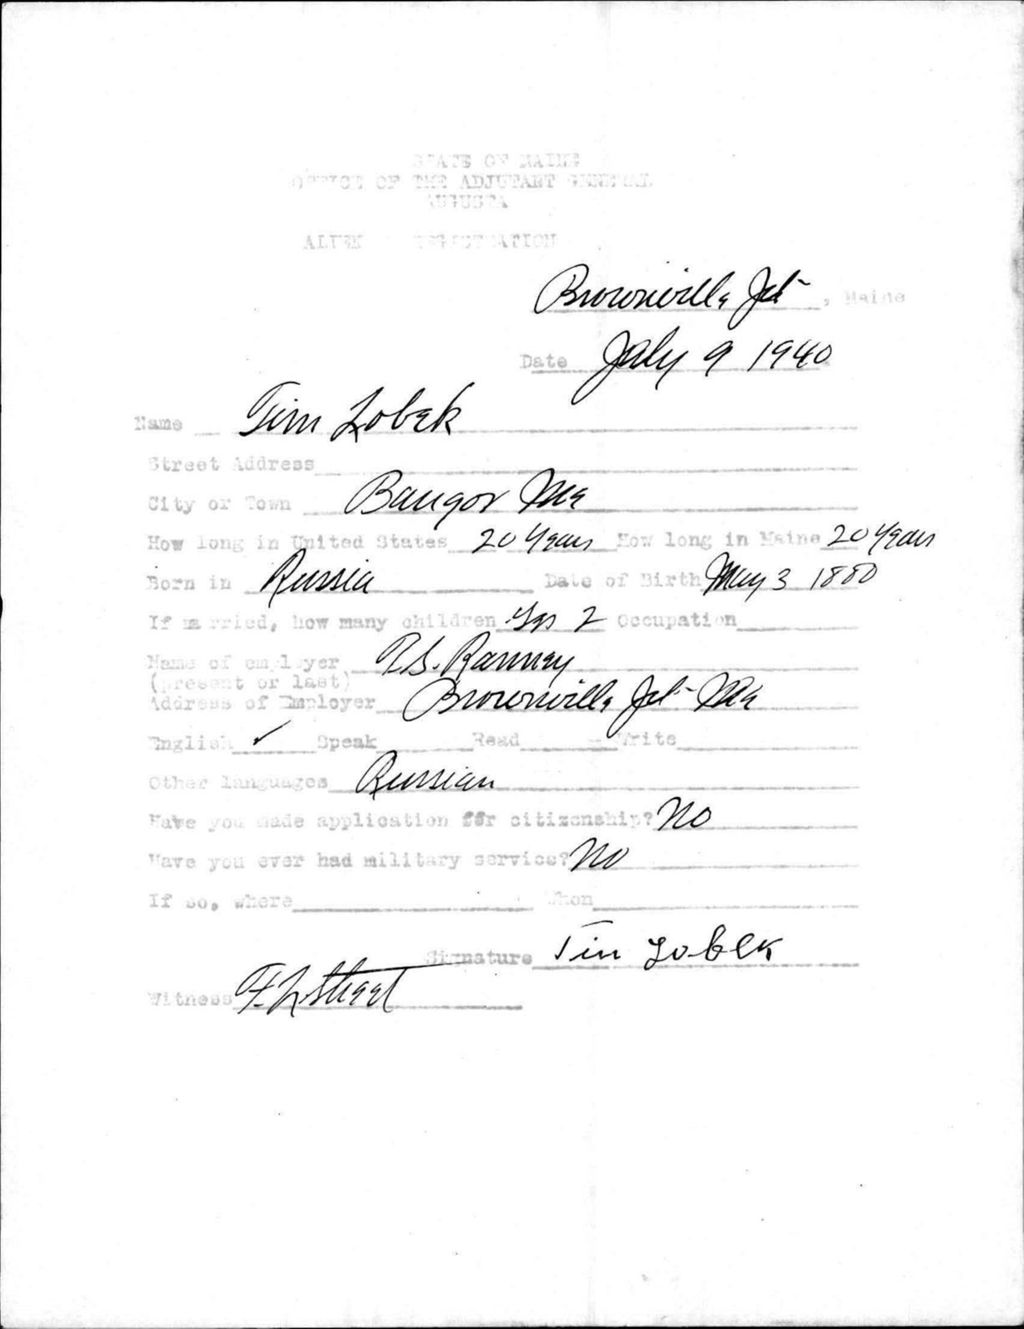 STATE OF MAINE
OFFICE OF THE ADJUTANT GENERAL
AUGUSTA
ALIEN REGISTRATION
Brownville Jct, Maine
Date July 9 1940
Name Tim Lobek
Street Address
City or Town Bangor Me
How long in United States 20 Years How long in Maine 20 Years
Born in Russia Date of Birth May 3 1880
If married, how many children Yes 2 Occupation
Name of employer P.S. Ranney
(present or last)
Address of Employer Brownville Jct Me
English ✓ Speak Read Write
Other languages Russian
Have you made application for citizenship? No
Have you ever had military service? No
If so, where When
Signature Tim Lobek
Witness